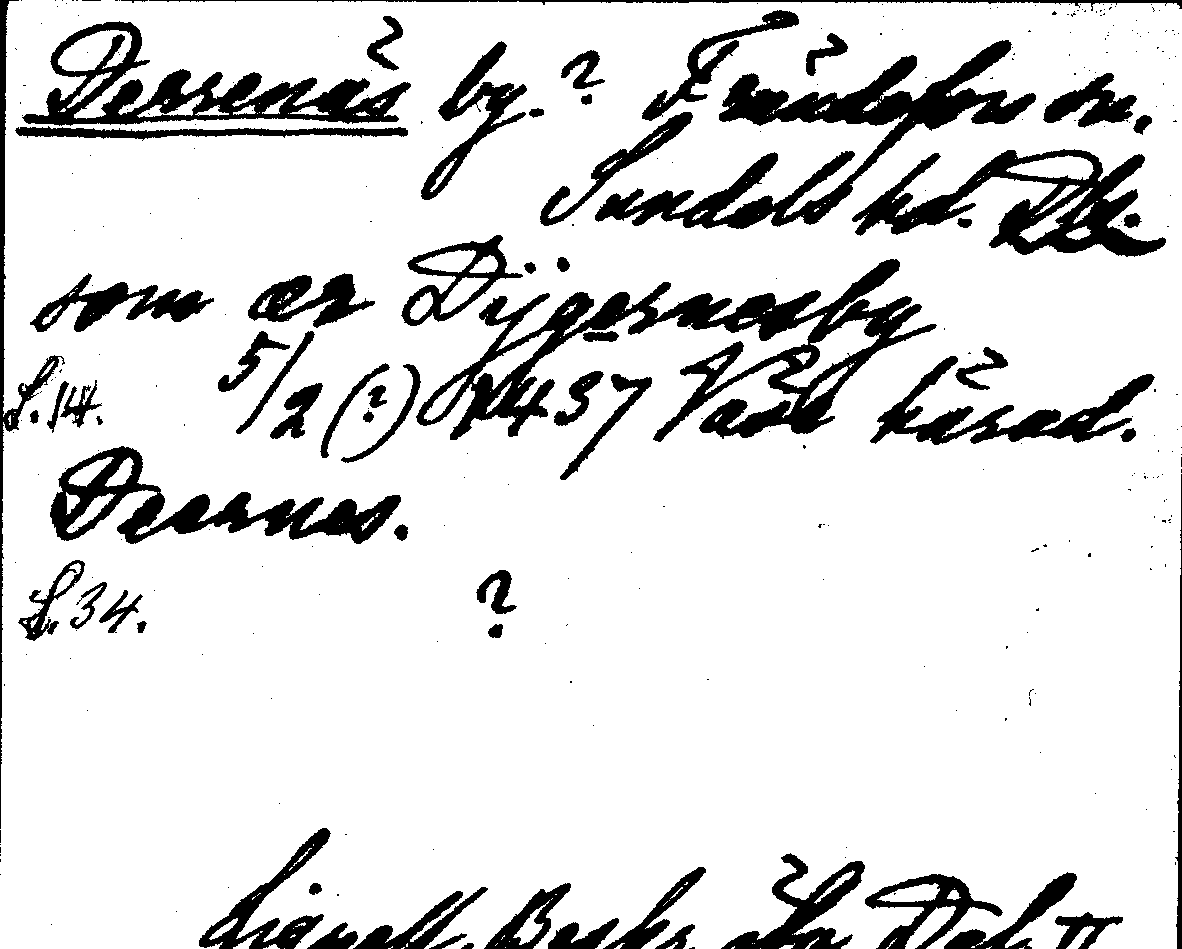 Dersenäs by.? Frändefors sn,
Sundals hd. Dls.
som er Dijgernesby
S. 14. 5/2 (?) 1437 Väne härad.
Deernes.
S. 34. ?
Lignell, Beskr. öfv. Dal II